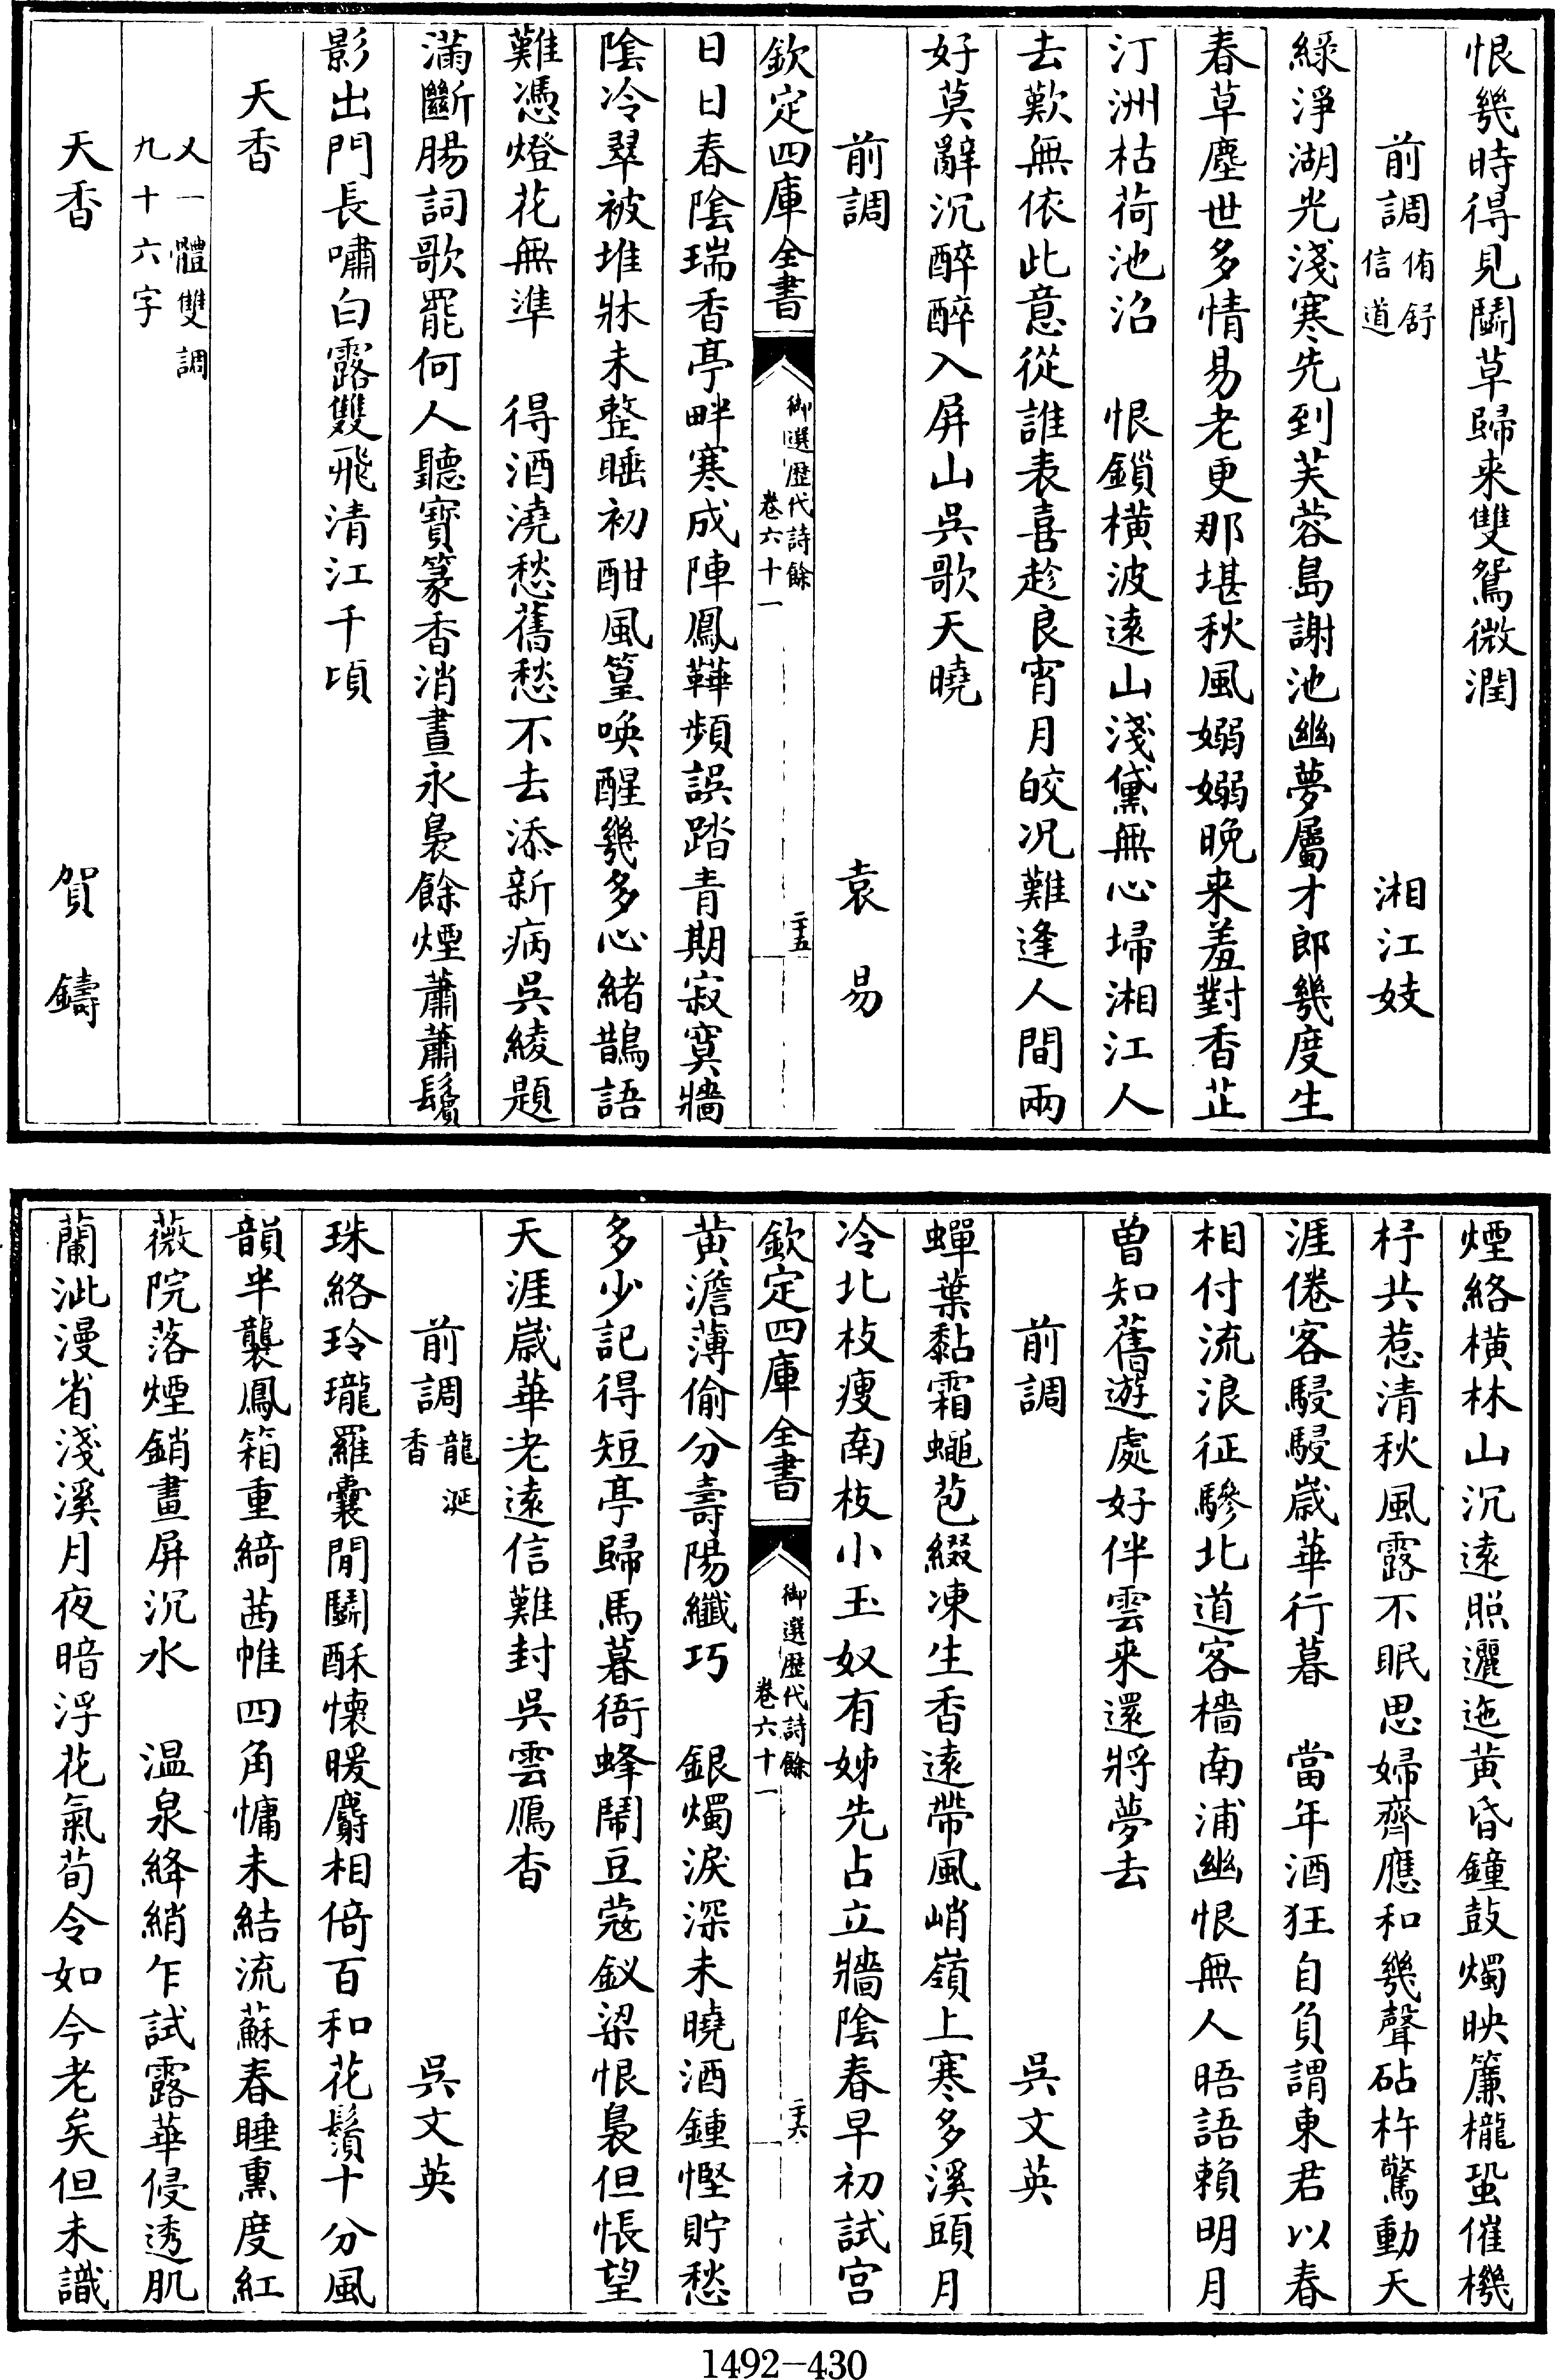 恨幾時得見鬭草歸来雙鴛微潤
前調侑舒信道　湘江妓
綠淨湖光淺寒先到芙蓉島謝池幽夢屬才郎幾度生
春草塵世多情易老更那堪秋風嫋嫋晚来羞對香芷
汀洲枯荷池沼　恨鎖橫波遠山淺黛無心埽湘江人
去歎無依此意從誰表喜趁良宵月皎况難逢人間兩
好莫辭沉醉醉入屏山吳歌天曉
前調　袁易
欽定四庫全書　御選歴代詩餘卷六十一　二十五
日日春陰瑞香亭畔寒成陣鳳鞾頻誤踏青期寂寞牆
陰冷翠被堆牀未整睡初酣風篁喚醒幾多心緒鵲語
難憑燈花無準　得酒澆愁舊愁不去添新病吳綾題
滿斷腸詞歌罷何人聽寶篆香消晝永裊餘煙蕭蕭鬢
影出門長嘯白露雙飛清江千頃
天香
又一體雙調九十六字
天香　賀鑄
煙絡橫林山沉遠照邐迤黄昏鐘鼓燭映簾櫳蛩催機
杼共惹清秋風露不眠思婦齊應和幾聲砧杵驚動天
涯倦客駸駸歲華行暮　當年酒狂自負謂東君以春
相付流浪征驂北道客檣南浦幽恨無人晤語賴明月
曽知舊遊處好伴雲来還將夢去
前調　吳文英
蟬葉黏霜蠅苞綴凍生香遠帶風峭嶺上寒多溪頭月
冷北枝瘦南枝小玉奴有姊先占立牆陰春早初試宫
欽定四庫全書　御選歴代詩餘卷六十一　二十六
黄澹薄偷分壽陽纖巧　銀燭淚深未曉酒鍾慳貯愁
多少記得短亭歸馬暮衙蜂鬧豆蔻釵梁恨裊但悵望
天涯歲華老遠信難封吳雲鴈杳
前調龍涎香　吳文英
珠絡玲瓏羅囊閒鬭酥懷暖麝相倚百和花鬚十分風
韻半襲鳳箱重綺茜帷四角慵未結流蘇春睡熏度紅
薇院落煙銷畫屏沉水　温泉絳綃乍試露華侵透肌
蘭泚漫省淺溪月夜暗浮花氣荀令如今老矣但未識
1492-430